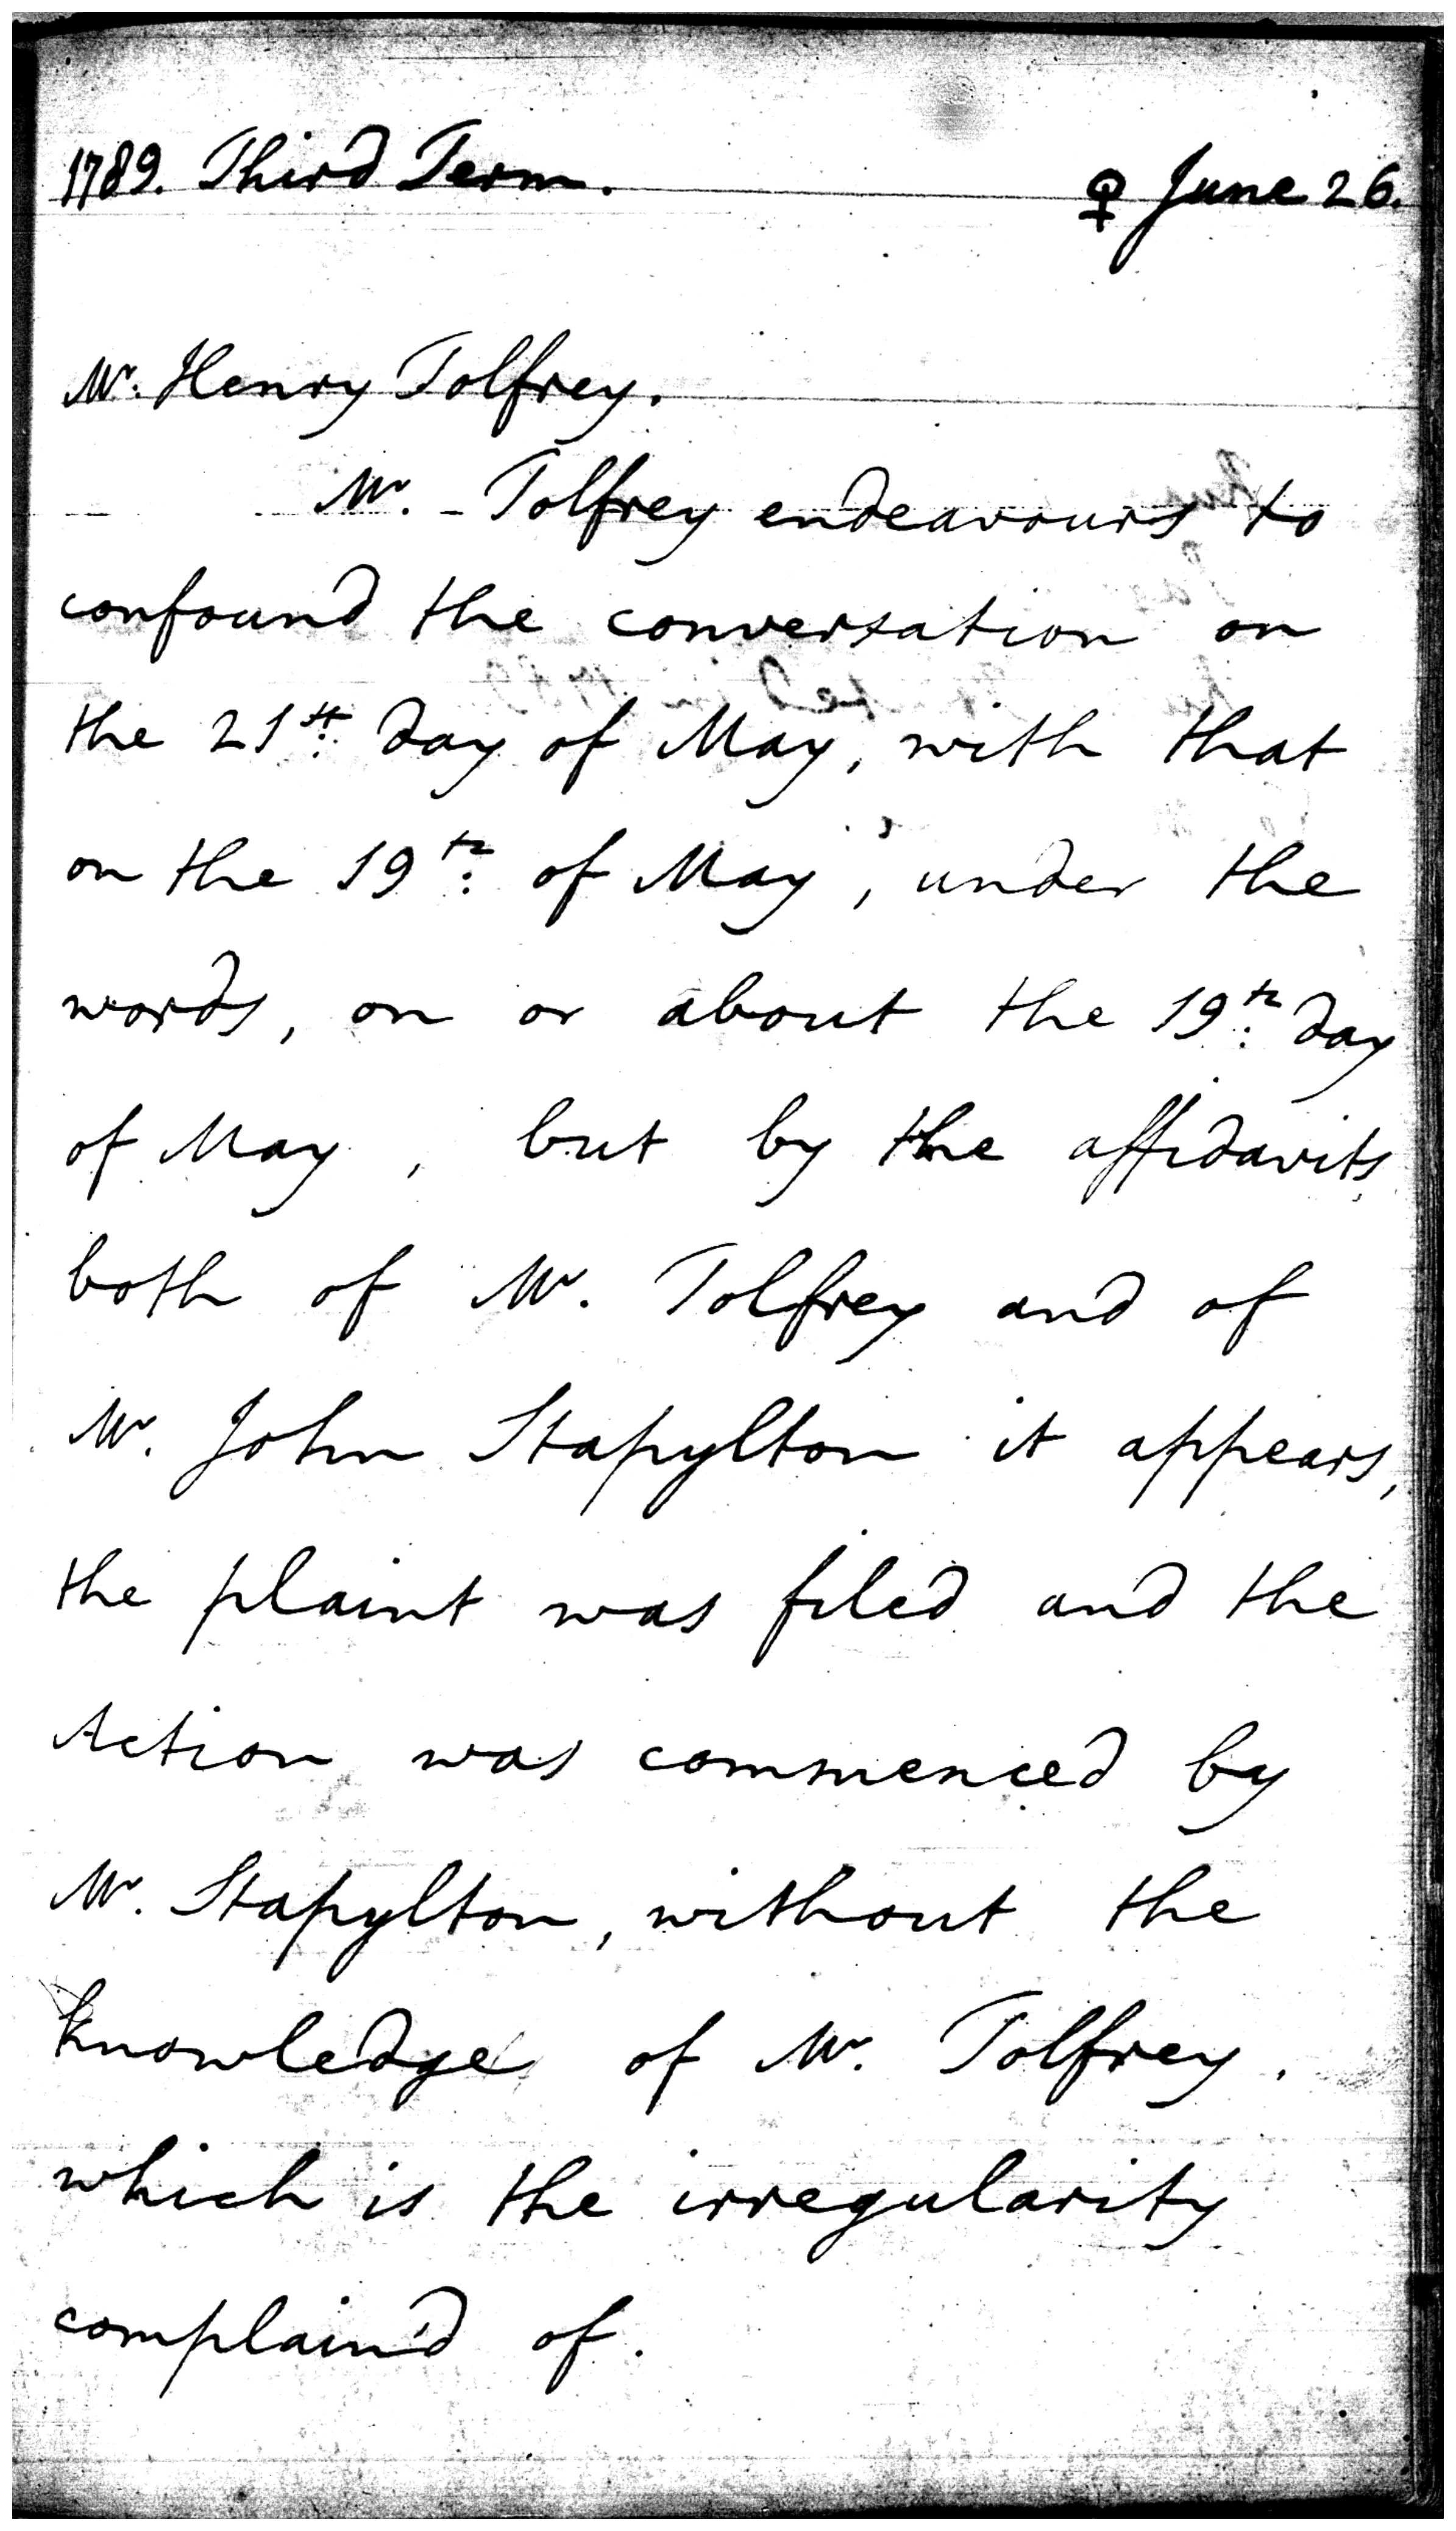 1789. Third Term. ♀ June 26.
Mr. Henry Tolfrey.
Mr. Tolfrey endeavours to
confound the conversation on
the 21st. day of May, with that
on the 19th. of May, under the
words, on or about the 19th. day
of May, but by the affidavits
both of Mr. Tolfrey and of
Mr. John Stapylton it appears,
the plaint was filed and the
Action was commenced by
Mr. Stapylton, without the
knowledge of Mr. Tolfrey.
which is the irregularity
complain'd of.